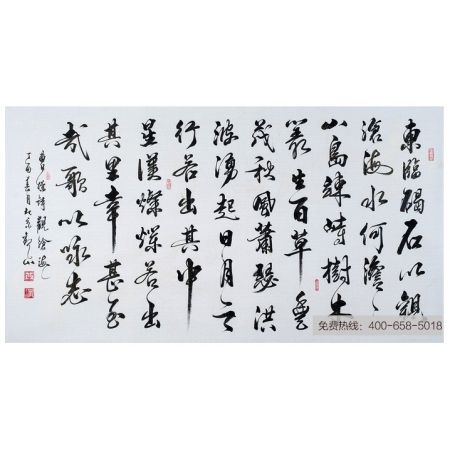 東臨碣石以觀
滄海水何澹々
山島竦峙樹木
叢生百草豐
茂秋風蕭瑟洪
波湧起日月之
行若出其中
星漢燦爛若出
其里幸甚至
哉歌以詠志
曹操詩觀滄海
丁酉春月於京
免费热线：400-658-5018